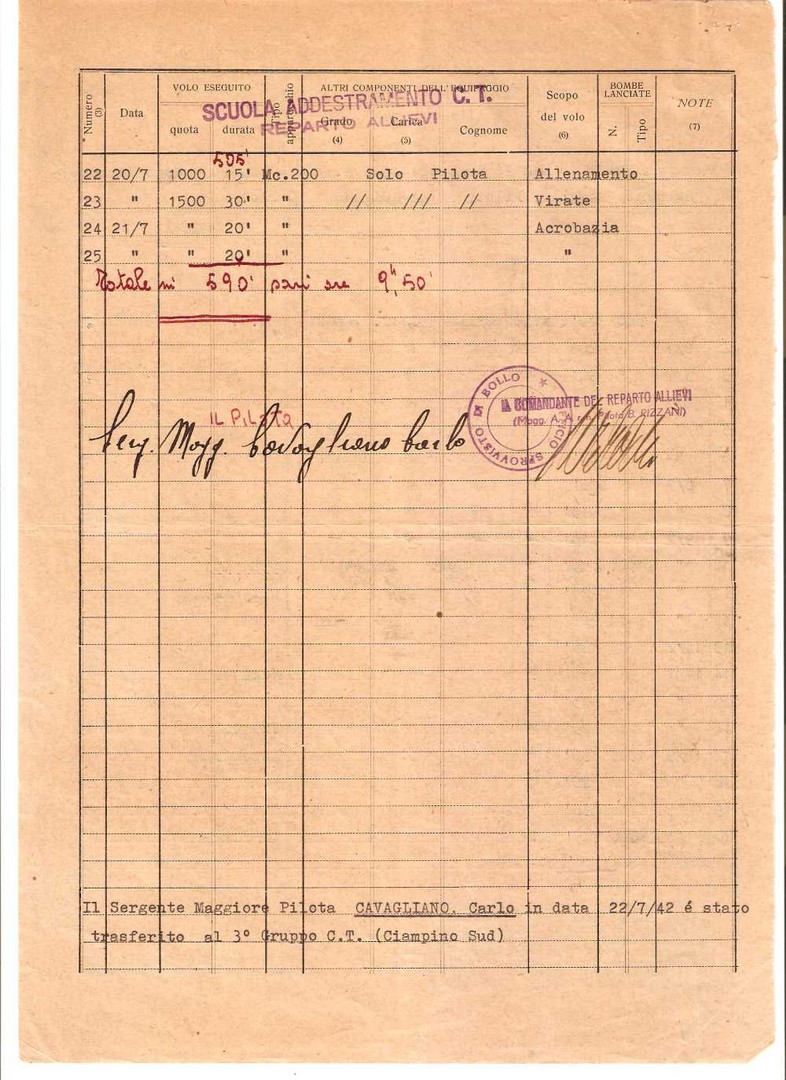 Numero (3) Data VOLO ESEGUITO quota durata Tipo apparecchio ALTRI COMPONENTI DELL'EQUIPAGGIO Grado (4) Carica (5) Cognome Scopo del volo (6) BOMBE LANCIATE N. Tipo NOTE (7)
SCUOLA ADDESTRAMENTO C.T.
REPARTO ALLIEVI
505'
22 20/7 1000 15' Mc.200 Solo Pilota Allenamento
23 " 1500 30' " // /// // Virate
24 21/7 " 20' " Acrobazia
25 " " 20' " "
Totale mi 590' pari ore 9h,50'
UFFICIO SPROVVISTO DI BOLLO
IL COMANDANTE DEL REPARTO ALLIEVI
(Magg. A.A. r.n. Pilota B. PIZZANI)
IL PiLota
Serg. Magg. Cavagliano Carlo
Il Sergente Maggiore Pilota CAVAGLIANO, Carlo in data 22/7/42 é stato
trasferito al 3° Gruppo C.T. (Ciampino Sud)